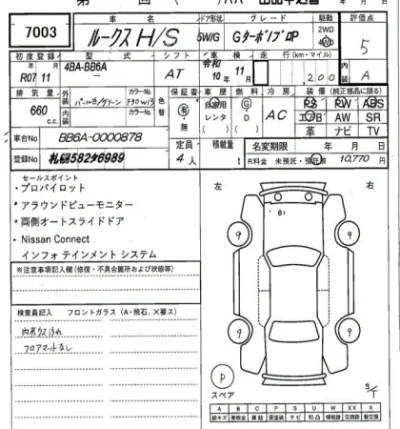 車名 ドア形状 グレード 駆動 評価点
7003 ルークス H/S 5W/G GターボプロP 2WD 4WD 5
初度登録 型式 シフト 車検 走行 (km・マイル) 内装
R07年11月 4BA-BB6A AT 令和10年11月 200 A
排気量 外装 カラーNo 色替 保証書 車歴 燃料 冷房 装備 (純正部品に限る)
660 c.c. パール白/グリーン 有・無 自家用 レンタ G D AC PS PW ABS
内装 カラーNo エアB AW SR
革 ナビ TV
車台No BB6A-0000878 定員 積載量 名変期限 年 月 日
登録No 札幌582タ6989 4人 t R料金 未預託・預託済 10,770円
セールスポイント
・プロパイロット
・アラウンドビューモニター
・両側オートスライドドア
・Nissan Connect
インフォテインメント システム
※注意事項記入欄(修復・不具合箇所および状態等)
検査員記入 フロントガラス(A・飛石、X要ス)
内装ウス汚れ
フロアマートなし
左 右
B1
9 9
9 9
P
スペア
S/T
A B C P S U W X XX